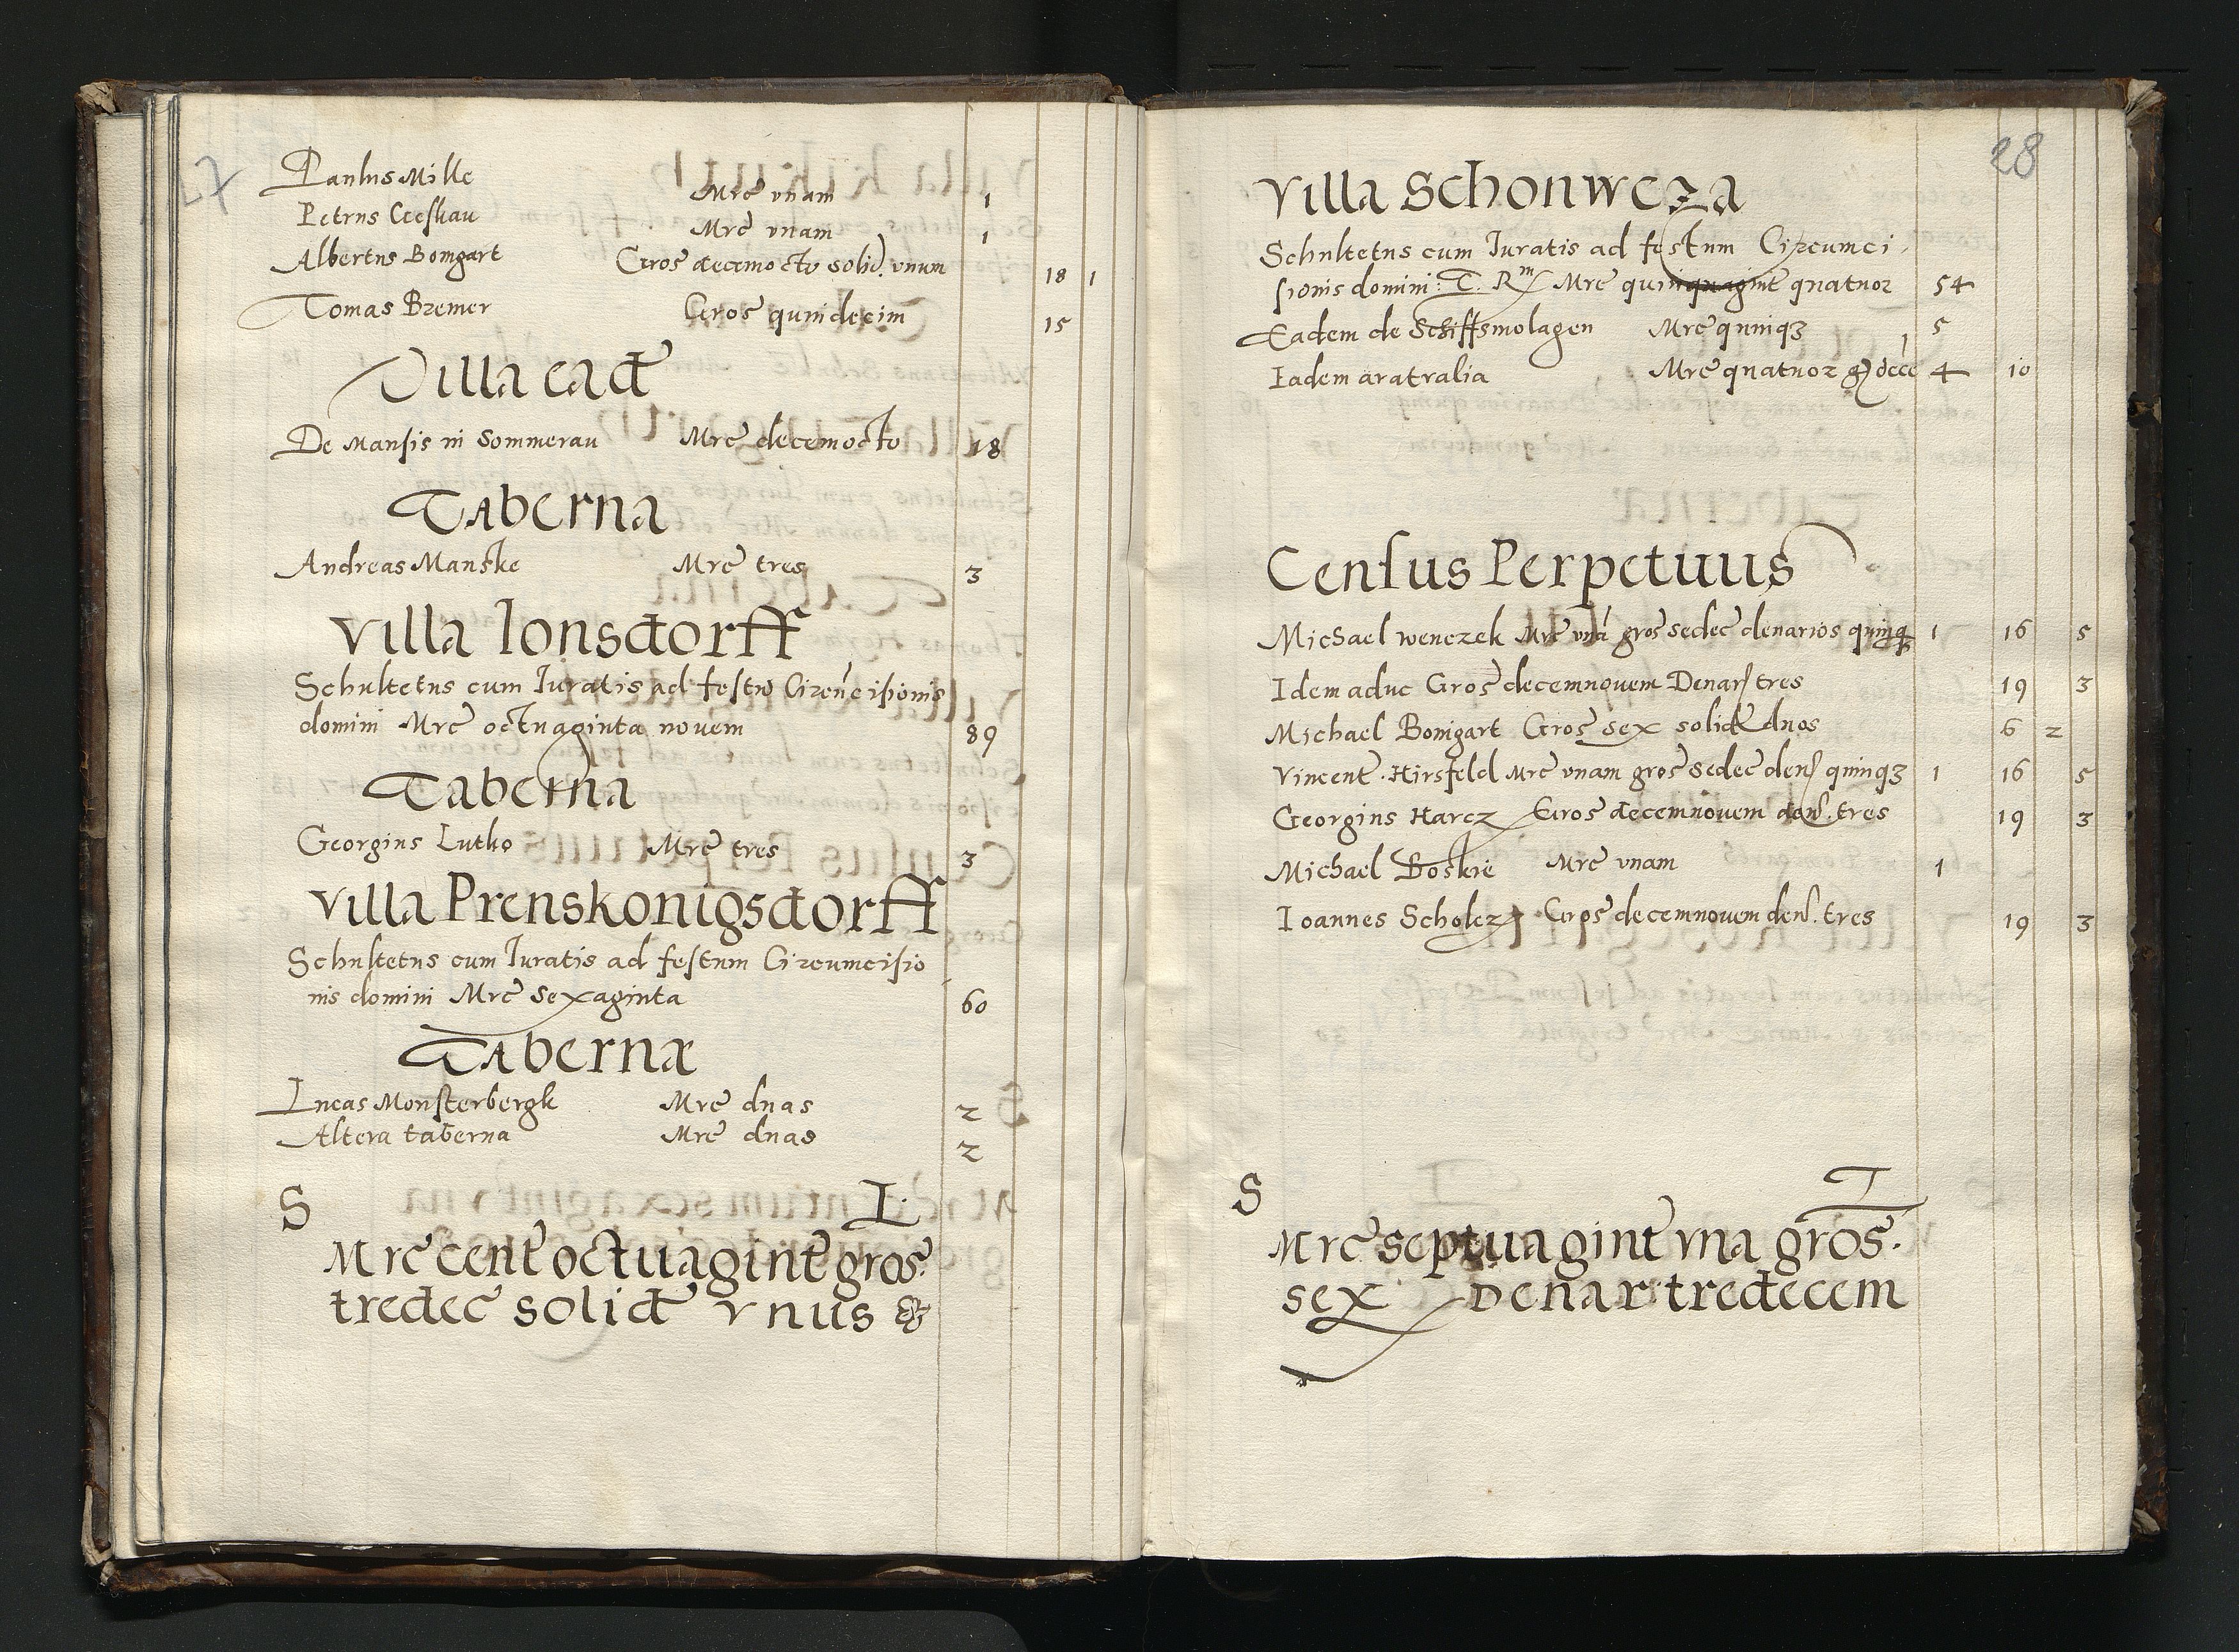 27
Paulus Mille Mrc̄ vnam 1
Petrus Ceeskau Mrc̄ vnam 1
Albertus Bomgart Gros̄ decemocto solid. vnum 18 1
Tomas Bremer Gros̄ quindecim 15
Villa ead̄
De Mansis in Sommerau Mrc̄ decemocto 18
Taberna
Andreas Manske Mrc̄ tres 3
Villa Ionsdorff
Schultetus cum Iuratis ad festū Circūcisionis
domini Mrc̄ octuaginta novem 89
Taberna
Georgius Lutko Mrc̄ tres 3
Villa Prenskonigsdorff
Schultetus cum Iuratis ad festum Circumcisio
nis domini Mrc̄ sexaginta 60
Tabernæ
Lucas Monsterbergk Mrc̄ duas 2
Altera taberna Mrc̄ duas 2
S L.
Mrc̄ cent̄ octuagint̄ gros̄.
tredec̄ solid̄ vnus
28
Villa Schonweza
Schultetus cum Iuratis ad festum Circumci
sionis domini T. Rm Mrc̄ quinquagint̄ quatuor 54
Eadem de Schiffsmolagen Mrc̄ quinqz 5
Iadem aratralia Mrc̄ quatuor g decē 4 10
Census Perpetuus
Michael wenczek Mrc̄ vnā gros̄ sedec̄ denarios quinq 1 16 5
Idem aduc Gros̄ decemnovem Denar tres 19 3
Michael Bomgart Gros̄ sex solid̄ duos 6 2
Vincent. Hirsfeld Mrc̄ vnam gros̄ sedec̄ den quinqz 1 16 5
Georgius Harcz Gros̄ decemnovem den. tres 19 3
Michael Boskie Mrc̄ vnam 1
Ioannes Scholcz Gros̄ decemnovem den. tres 19 3
S T
Mrc̄ septuagint̄ vna gros̄.
sex Denar: tredecem